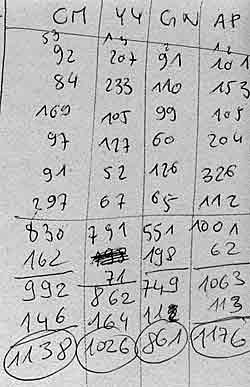 CM YY GN AP
92 207 91 101
84 233 110 153
169 105 99 105
97 127 60 204
91 52 126 326
297 67 65 112
830 791 551 1001
162 71 198 62
992 862 749 1063
146 164 112 113
1138 1026 861 1176